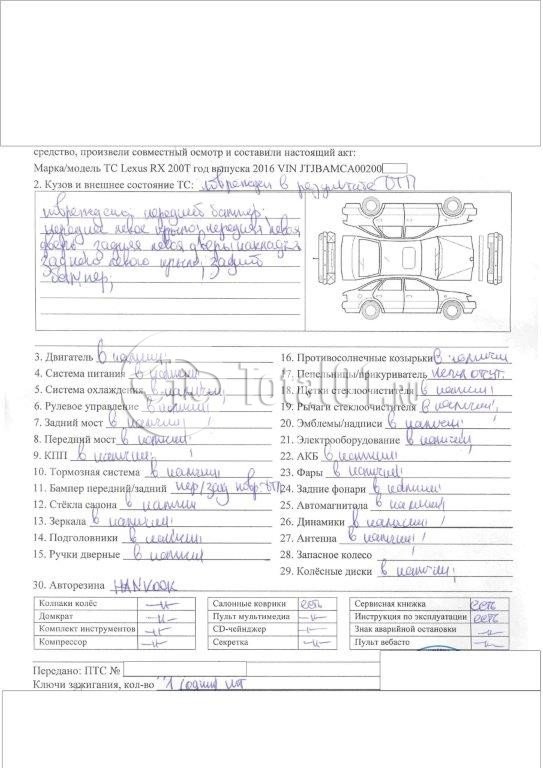 средство, произвели совместный осмотр и составили настоящий акт:
Марка/модель ТС Lexus RX 200T год выпуска 2016 VIN JTJBAMCA00200
2. Кузов и внешнее состояние ТС: повреждён в результате ДТП
повреждены передний бампер;
переднее левое крыло, передняя левая
дверь, задняя левая дверь, накладка
заднего левого крыла, задний
бампер;
3. Двигатель в наличии;
4. Система питания в наличии
5. Система охлаждения в наличии;
6. Рулевое управление в наличии
7. Задний мост в наличии;
8. Передний мост в наличии;
9. КПП в наличии;
10. Тормозная система в наличии
11. Бампер передний/задний пер/зад повр. ДТП
12. Стёкла салона в наличии;
13. Зеркала в наличии;
14. Подголовники в наличии;
15. Ручки дверные в наличии
16. Противосолнечные козырьки в наличии
17. Пепельницы/прикуриватель отсут.
18. Щетки стеклоочистителя в наличии;
19. Рычаги стеклоочистителя в наличии;
20. Эмблемы/надписи в наличии;
21. Электрооборудование в наличии;
22. АКБ в наличии
23. Фары в наличии;
24. Задние фонари в наличии
25. Автомагнитола в наличии
26. Динамики в наличии;
27. Антенна в наличии;
28. Запасное колесо
29. Колёсные диски в наличии;
Total01.ru
30. Авторезина HANKOOK
Колпаки колёс —//—
Домкрат —//—
Комплект инструментов —//—
Компрессор —//—
Салонные коврики есть
Пульт мультимедиа —//—
CD-чейнджер —//—
Секретка —//—
Сервисная книжка есть
Инструкция по эксплуатации есть
Знак аварийной остановки —//—
Пульт вебасто —//—
Передано: ПТС №
Ключи зажигания, кол-во 1 (один) шт